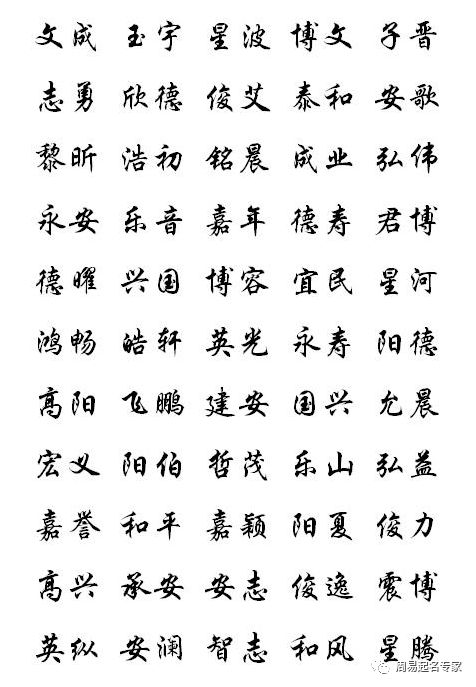 文成 玉宇 星波 博文 子晋
志勇 欣德 俊艾 泰和 安歌
黎昕 浩初 铭晨 成业 弘伟
永安 乐音 嘉年 德寿 君博
德曜 兴国 博容 宜民 星河
鸿畅 皓轩 英光 永寿 阳德
高阳 飞鹏 建安 国兴 允晨
宏义 阳伯 哲茂 乐山 弘益
嘉誉 和平 嘉颖 阳夏 俊力
高兴 承安 安志 俊逸 震博
英纵 安澜 智志 和风 星腾
周易起名专家